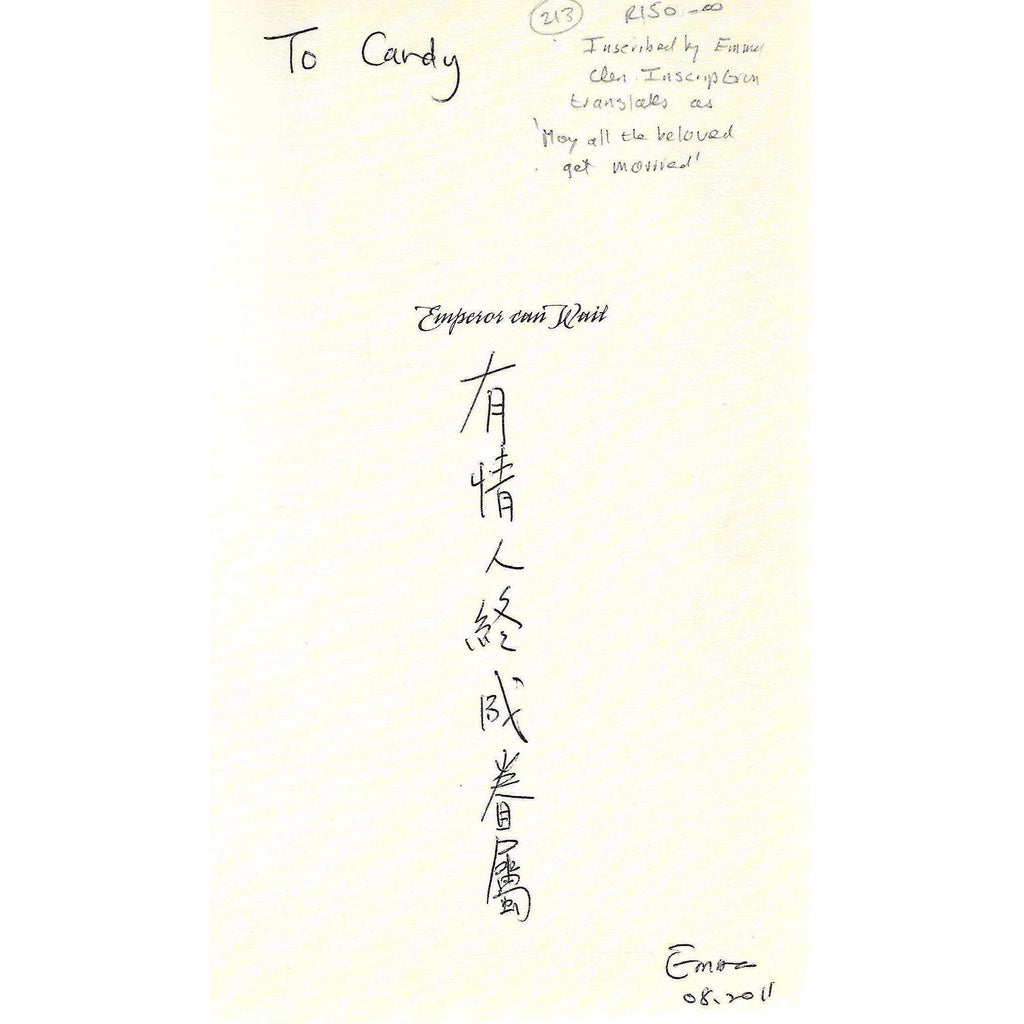 To Candy
213 R150-00
Inscribed by Emma
Chen. Inscription
translates as
'May all the beloved
get married'
Emperor can Wait
有情人終成眷屬
Emma
08.2011